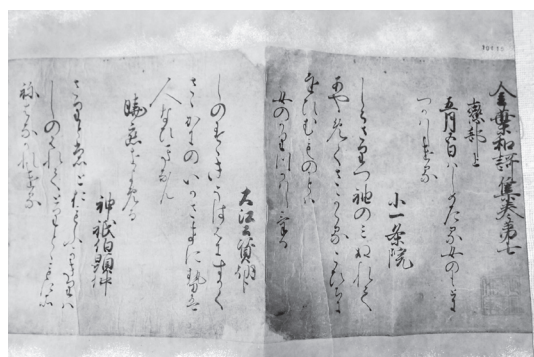 金葉和謌集巻第七
恋部上
五月五日はしめたる女のもとに
つかはしける
小一条院
しらさりつ袖のみぬれて
あやめくさかゝるこひちに
おひむものとは
女のかりつかはしける
大江公資朝臣
しのすゝきうはゝにすかく
さゝかにのいかさまに勢は
人なひきなん
暁恋をよめる
神祇伯顕仲
さりともとおもふかきりは
しのはれてとりとゝもにそ
祢はなかれける